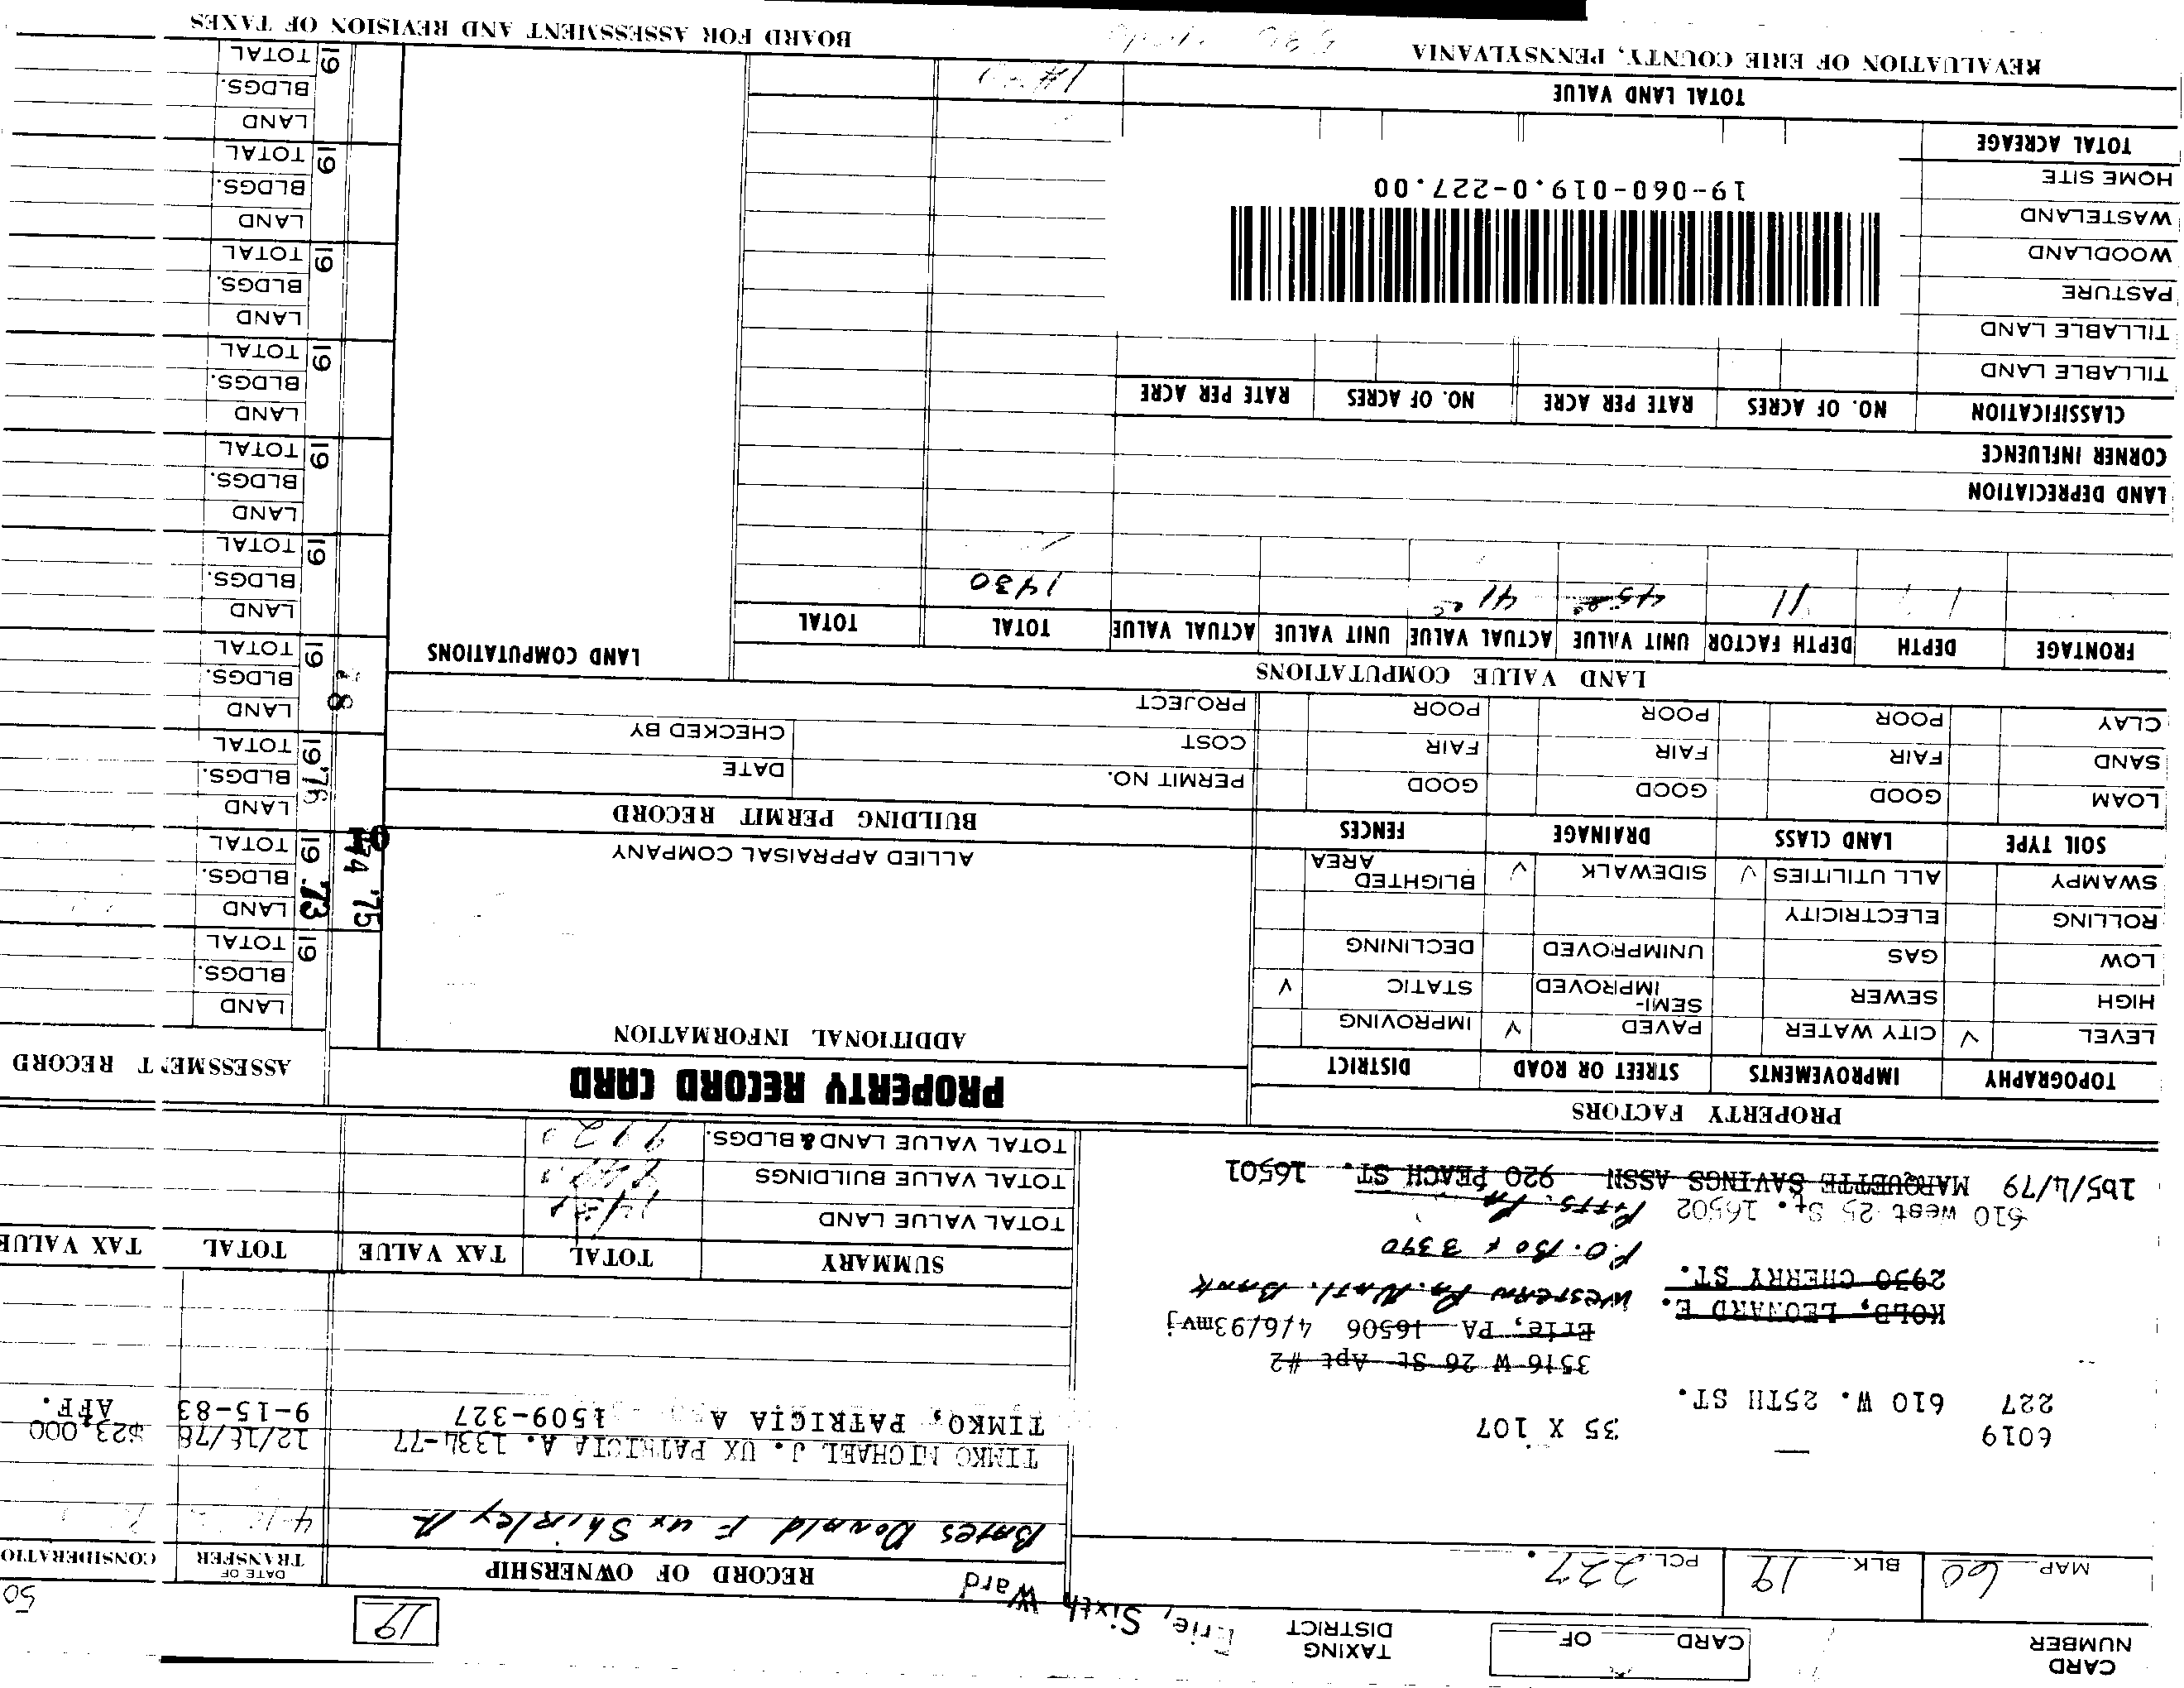 CARD NUMBER
CARD OF
TAXING DISTRICT Erie, Sixth Ward
19
50
MAP 60 BLK. 19 PCL. 227.
RECORD OF OWNERSHIP
DATE OF TRANSFER
CONSIDERATIO
Bates Donald F ux Shirley A
TIMKO MICHAEL J. UX PATRICIA A. 1334-77 12/18/78 $23,000
TIMKO, PATRICIA A 1509-327 9-15-83 AFF.
6019 35 X 107
227 610 W. 25TH ST.
3516 W 26 St Apt #2
Erie, PA 16506 4/6/93mvj
KOLB, LEONARD E. Western Pa. Natl. Bank
2930 CHERRY ST. P.O. Box 3390
610 West 25 St. 16502 Pitts. Pa
1b5/4/79 MARQUETTE SAVINGS ASSN 920 PEACH ST. 16501
SUMMARY TOTAL TAX VALUE TOTAL TAX VALUE
TOTAL VALUE LAND
TOTAL VALUE BUILDINGS
TOTAL VALUE LAND & BLDGS.
PROPERTY FACTORS
TOPOGRAPHY IMPROVEMENTS STREET OR ROAD DISTRICT
LEVEL ✓ CITY WATER PAVED ✓ IMPROVING
HIGH SEWER SEMI-IMPROVED STATIC ✓
LOW GAS UNIMPROVED DECLINING
ROLLING ELECTRICITY
SWAMPY ALL UTILITIES ✓ SIDEWALK ✓ BLIGHTED AREA
SOIL TYPE LAND CLASS DRAINAGE FENCES
LOAM GOOD GOOD GOOD
SAND FAIR FAIR FAIR
CLAY POOR POOR POOR
PROPERTY RECORD CARD
ADDITIONAL INFORMATION
ALLIED APPRAISAL COMPANY
BUILDING PERMIT RECORD
PERMIT NO. DATE
COST CHECKED BY
PROJECT
LAND VALUE COMPUTATIONS
LAND COMPUTATIONS
FRONTAGE DEPTH DEPTH FACTOR UNIT VALUE ACTUAL VALUE UNIT VALUE ACTUAL VALUE TOTAL TOTAL
1430
LAND DEPRECIATION
CORNER INFLUENCE
CLASSIFICATION NO. OF ACRES RATE PER ACRE NO. OF ACRES RATE PER ACRE
TILLABLE LAND
TILLABLE LAND
PASTURE
WOODLAND
WASTELAND
HOME SITE
TOTAL ACREAGE
19-060-019.0-227.00
TOTAL LAND VALUE
REVALUATION OF ERIE COUNTY, PENNSYLVANIA
BOARD FOR ASSESSMENT AND REVISION OF TAXES
ASSESSMENT RECORD
19 LAND
BLDGS.
TOTAL
19 '73 LAND
BLDGS.
TOTAL
'74 '75
19 '76 LAND
BLDGS.
TOTAL
19 LAND
BLDGS.
TOTAL
19 LAND
BLDGS.
TOTAL
19 LAND
BLDGS.
TOTAL
19 LAND
BLDGS.
TOTAL
19 LAND
BLDGS.
TOTAL
19 LAND
BLDGS.
TOTAL
19 LAND
BLDGS.
TOTAL